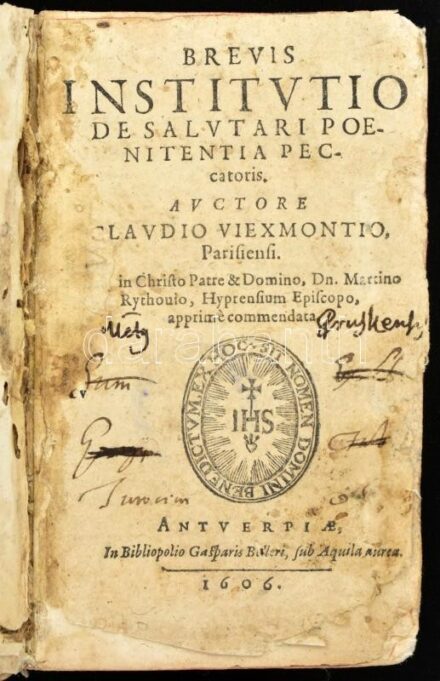 BREVIS
INSTITVTIO
DE SALVTARI POE-
NITENTIA PEC-
catoris.
AVCTORE
CLAVDIO VIEXMONTIO,
Parisiensi.
in Christo Patre & Domino, Dn. Martino
Rythouio, Hyprensium Episcopo,
apprimè commendata
SIT NOMEN DOMINI BENEDICTVM. EX HOC.
IHS
ANTVERPIÆ,
In Bibliopolio Gasparis Belleri, sub Aquila aurea.
1606.